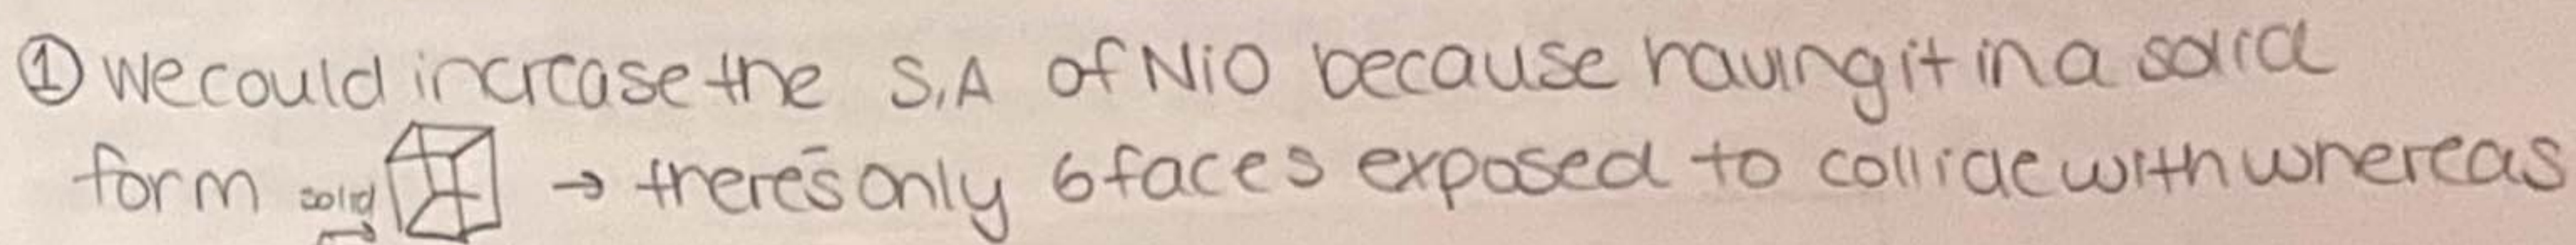 ① We could increase the S.A of NiO because having it in a solid
form solid → there's only 6 faces exposed to collide with whereas